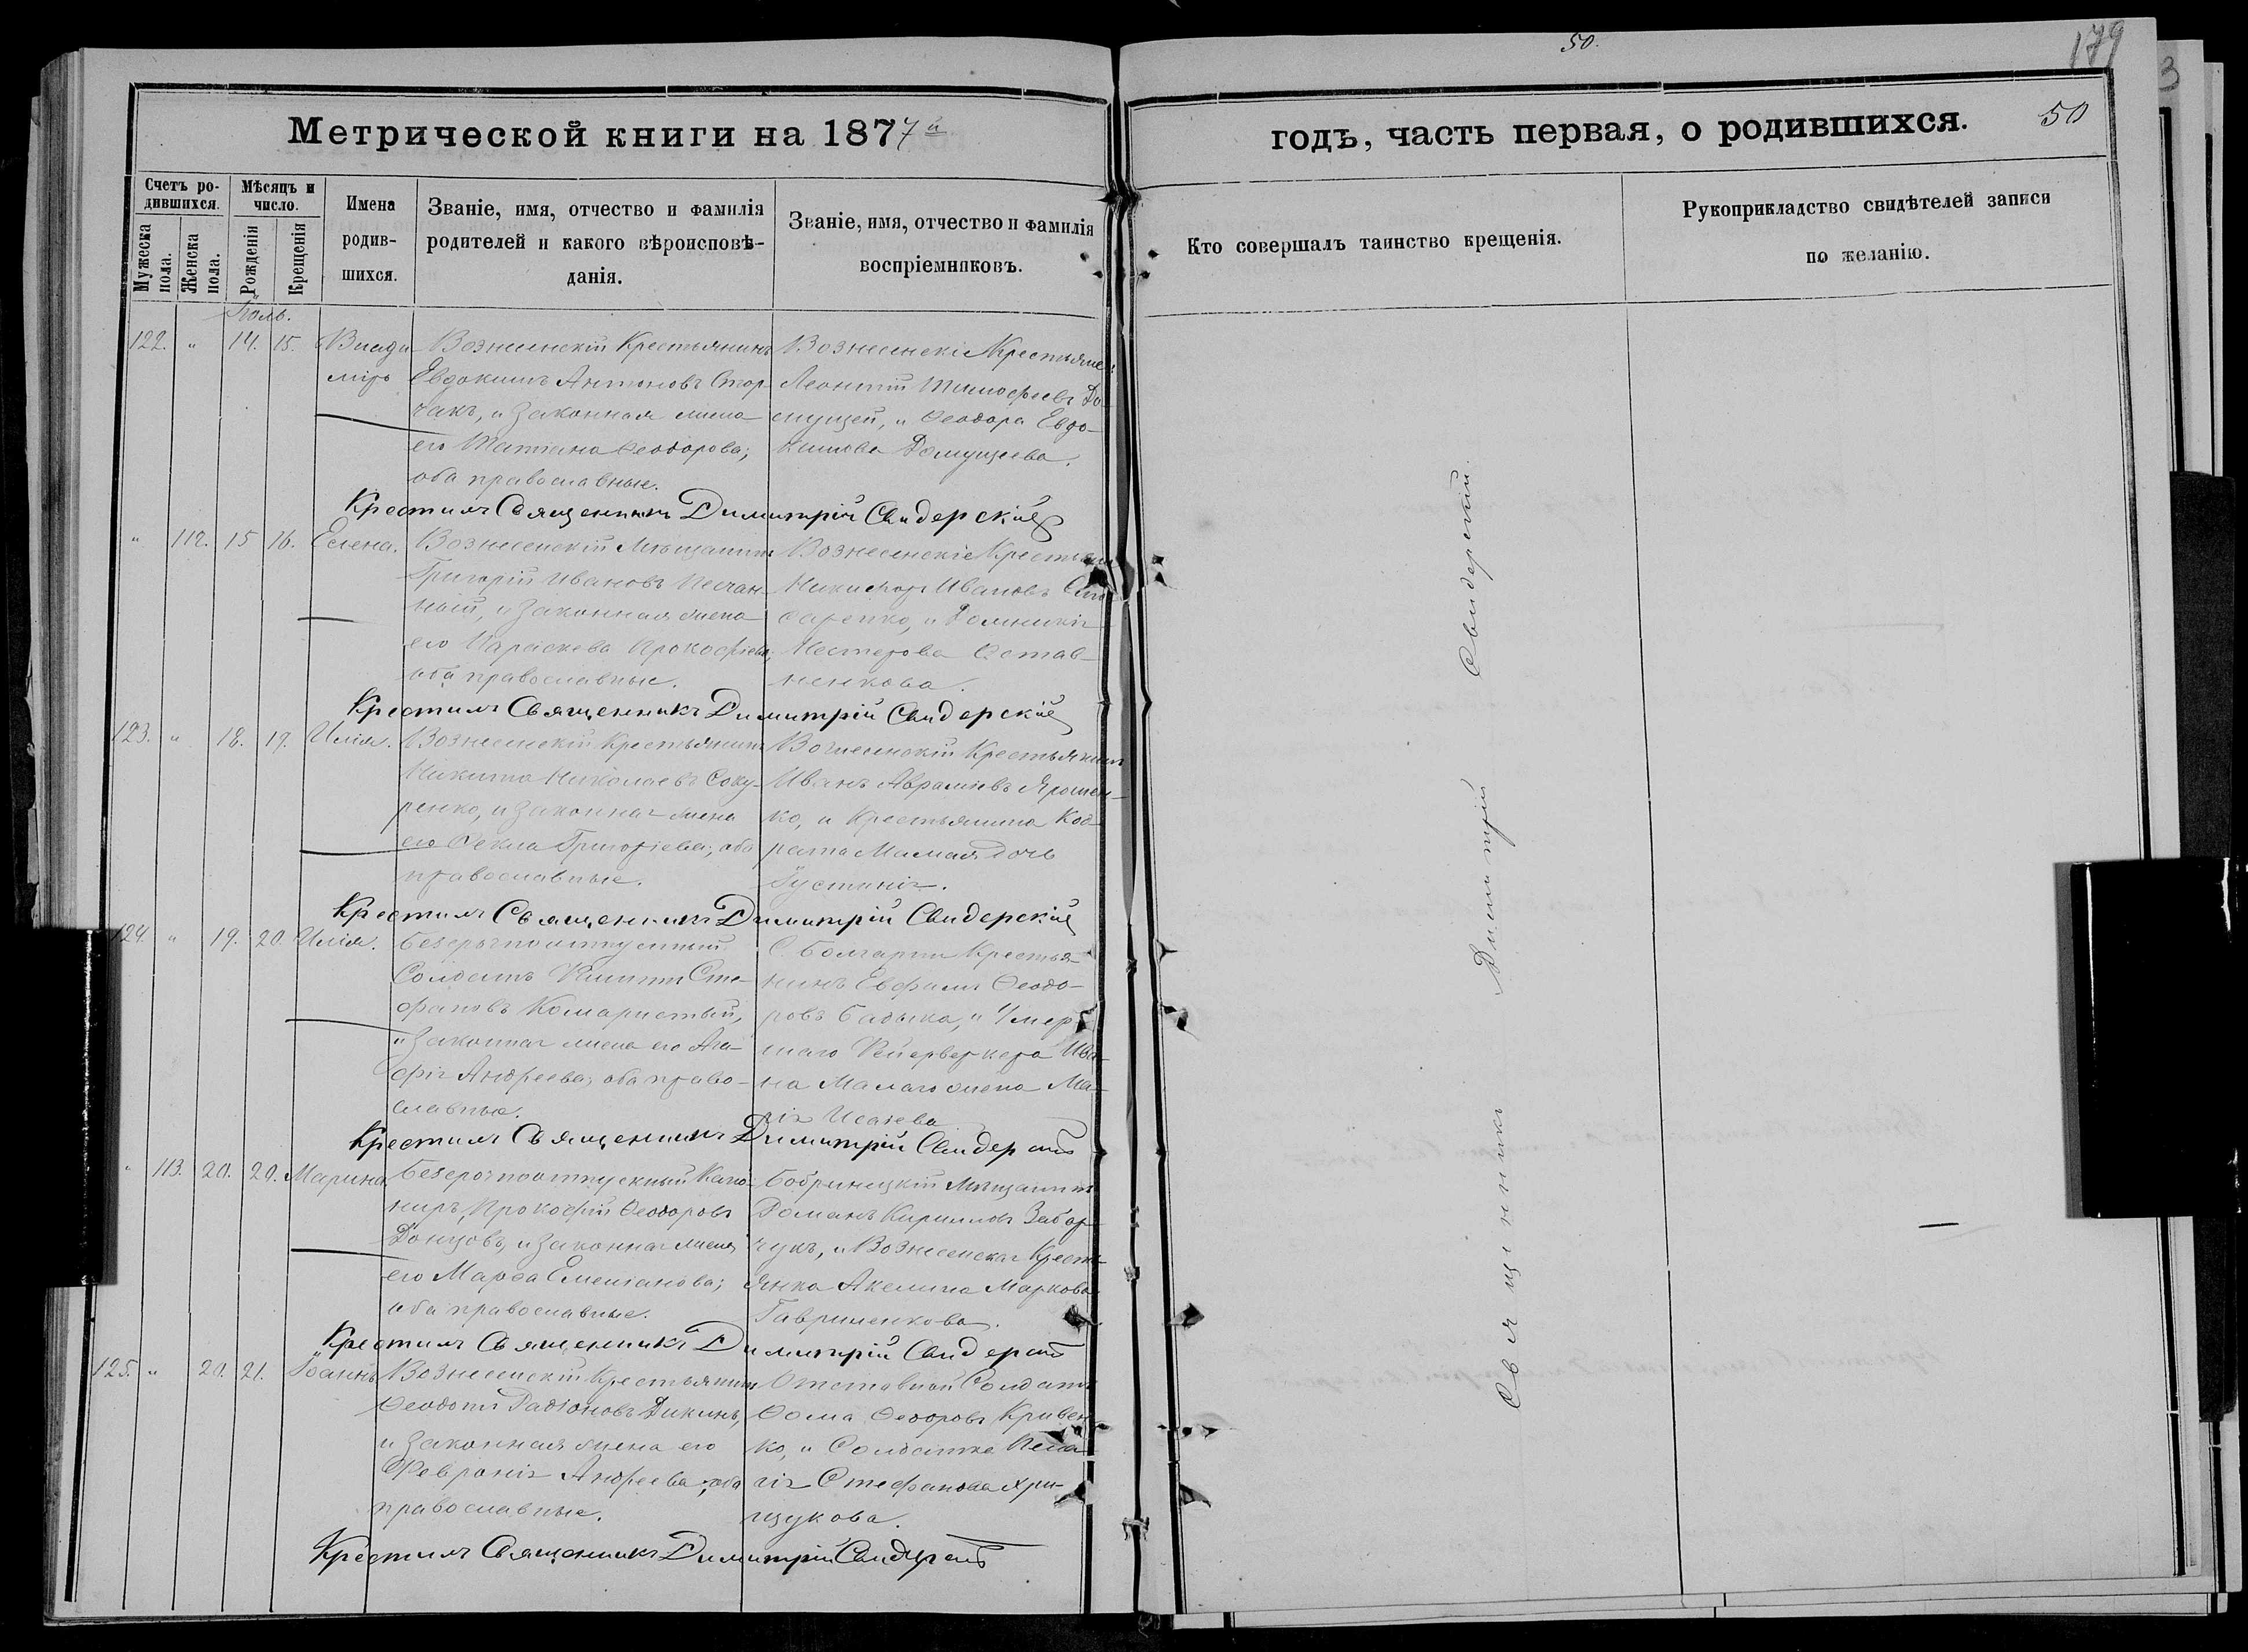 50.
179
3
Метрической книги на 1877й
годъ, часть первая, о родившихся.
50
Счетъ ро-
дившихся.
Мужеска пола.
Женска пола.
Мѣсяцъ и
число.
Рожденія
Крещенія
Имена
родив-
шихся.
Званіе, имя, отчество и фамилія
родителей и какого вѣроисповѣ-
данія.
Званіе, имя, отчество и фамилія
воспріемниковъ.
Кто совершалъ таинство крещенія.
Рукоприкладство свидѣтелей записи
по желанію.
Іюль.
122. " 14. 15. Влади
міръ
Вознесенскій Крестьянинъ
Евдокимъ Антоновъ Стор-
чакъ, и законная жена
его Татіана Ѳеодорова;
оба православные.
Вознесенскіе Крестьяне:
Леонтій Тимофеевъ До-
мущей, и Ѳеодора Евдо-
кимова Домущеева.
Крестилъ Священникъ Димитрій Свидерскій
" 112. 15 16. Елена.
Вознесенскій Мѣщанинъ
Григорій Ивановъ Песчан-
ный, и законная жена
его Параскева Прокофіева;
оба православные.
Вознесенскіе Крестьяне
Никифоръ Ивановъ
саренко, и Домникія
Нестерова Остав-
ненкова.
Крестилъ Священникъ Димитрій Свидерскій
123. " 18. 19. Илія.
Вознесенскій Крестьянинъ
Никита Николаевъ Соку-
ренко, и законная жена
его Ѳекла Григоріева; оба
православные.
Вознесенскій Крестьянинъ
Иванъ Авраміевъ Ярошен-
ко, и Крестьянина Код-
рата Мамая дочь
Іустинія.
Крестилъ Священникъ Димитрій Свидерскій
124. " 19. 20. Илія.
Безсрочноотпускный
Солдатъ Филиппъ Сте-
фановъ Комаристый,
и законная жена его Ага-
фія Андреева; оба право-
славные.
С. Болгарки Крестья-
нинъ Евфимъ Ѳеодо-
ровъ Бадыка, и Умер-
шаго Фейерверкера Ива-
на Малаго жена Ма-
рія Исаіева
Крестилъ Священникъ Димитрій Свидерскій
" 113. 20. 20. Марина
Безсрочноотпускный Кано-
ниръ, Прокофій Ѳеодоровъ
Донцовъ, и законная жена
его Марѳа Емеліанова;
оба православные.
Бобринецкій Мѣщанинъ
Романъ Кирилловъ Забор-
чукъ, и Вознесенская Кресть-
янка Акелина Маркова
Гавриленкова.
Крестилъ Священникъ Димитрій Свидерскій
125. " 20. 21. Іоаннъ
Вознесенскій Крестьянинъ
Ѳеодотъ Радіоновъ Дикинъ,
и законная жена его
Февронія Андреева; оба
православные.
Отставной Солдатъ
Ѳома Ѳеодоровъ Кривен-
ко, и Солдатка Пела-
гія Стефанова Хри-
щукова.
Крестилъ Священникъ Димитрій Свидерскій
Священникъ Димитрій Свидерскій